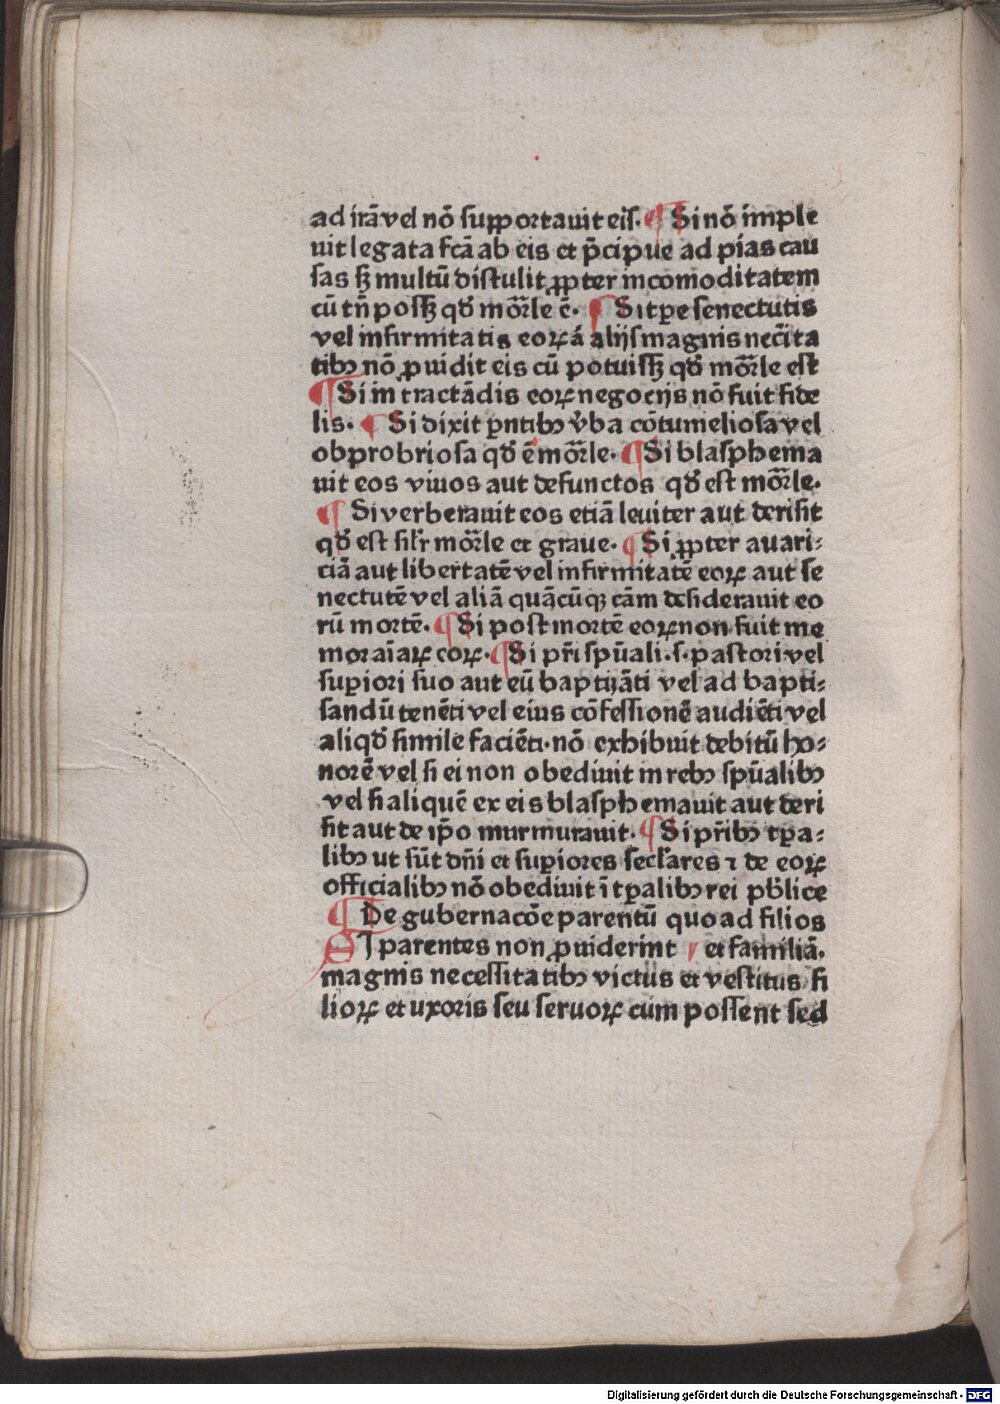 ad irā vel nō supportauit eis. ¶ Si nō imple
uit legata fcā ab eis et p̄cipue ad pias cau
sas sꝫ multū distulit ꝓpter incomoditatem
cū tn̄ possꝫ qd̓ mōr̄le ē. ¶ Si tꝑe senectutis
vel infirmitatis eoꝝ ā alijs magnis nec̄ita
tibꝫ nō ꝓuidit eis cū potuissꝫ qd̓ mōr̄le est
¶ Si in tractādis eoꝝ negocijs nō fuit fide
lis. ¶ Si dixit pn̄tibꝫ v̓ba cōtumeliosa vel
obprobriosa qd̓ ē mōr̄le. ¶ Si blasphema
uit eos viuos aut defunctos qd̓ est mōr̄le.
¶ Si verberauit eos etiā leuiter aut derisit
qd̓ est sil̓r mōr̄le et graue. ¶ Si ꝓpter auari-
ciā aut libertatē vel infirmitatē eoꝝ aut se
nectutē vel aliā quācūqꝫ cām desiderauit eo
rū mortē. ¶ Si post mortē eoꝝ non fuit me
mor aīaꝝ eoꝝ. ¶ Si pr̄i spūali .s. pastori vel
superiori suo aut eū baptizāti vel ad bapti-
sandū tenēti vel eius cōfessionē audiēti vel
aliqd̓ simile faciēti. nō exhibuit debitū ho-
norē vel si ei non obediuit in rebꝫ spūalibꝫ
vel si aliquē ex eis blasphemauit aut deri
sit aut de ip̄o murmurauit. ¶ Si pr̄ibꝫ tꝑa-
libꝫ ut sūt dn̄i et suꝑiores sec̓lares ⁊ de eoꝝ
officialibꝫ nō obediuit ī tꝑalibꝫ rei pb̓lice
¶ De gubernacōe parentū quo ad filios
SI parentes non ꝓuiderint et familiā.
magnis necessitatibꝫ victus et vestitus fi
lioꝝ et uxoris seu seruoꝝ cum possent sed
Digitalisierung gefördert durch die Deutsche Forschungsgemeinschaft - DFG